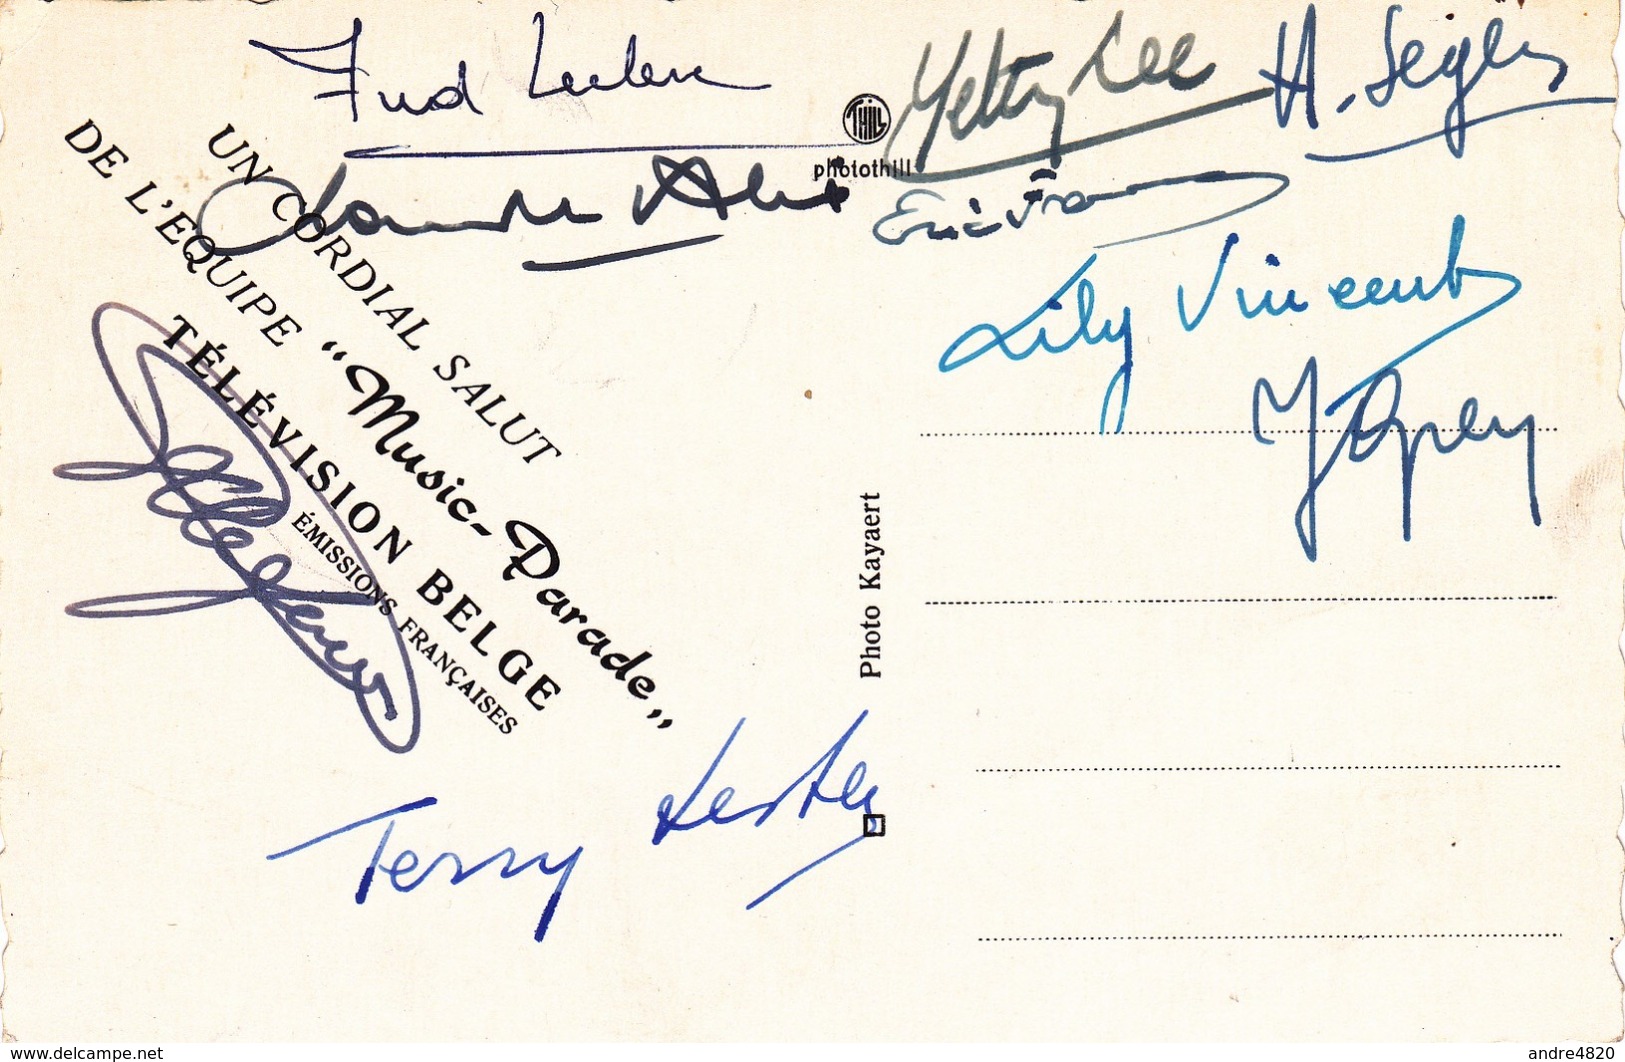 Fud Leclerc
Yetty Lee
H. Segers
THILL
photothill
Claude Alix
Lily Vincent
UN CORDIAL SALUT
DE L'EQUIPE “Music-Parade„
TÉLÉVISION BELGE
ÉMISSIONS FRANÇAISES
Photo Kayaert
Terry Lester
www.delcampe.net
andre4820